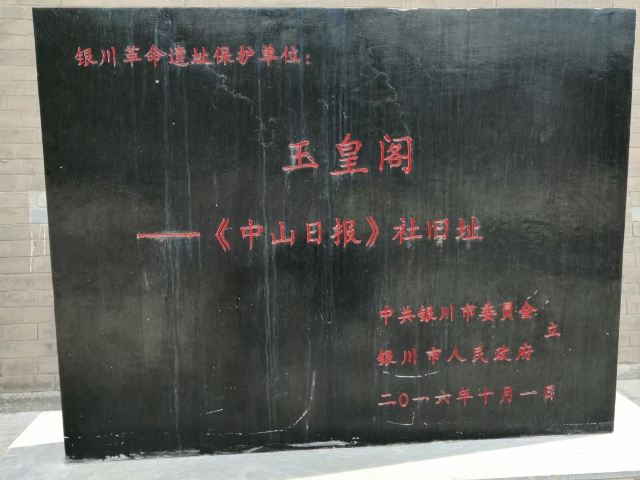 银川革命遗址保护单位：
玉皇阁
——《中山日报》社旧址
中共银川市委员会
银川市人民政府 立
二〇一六年十月一日